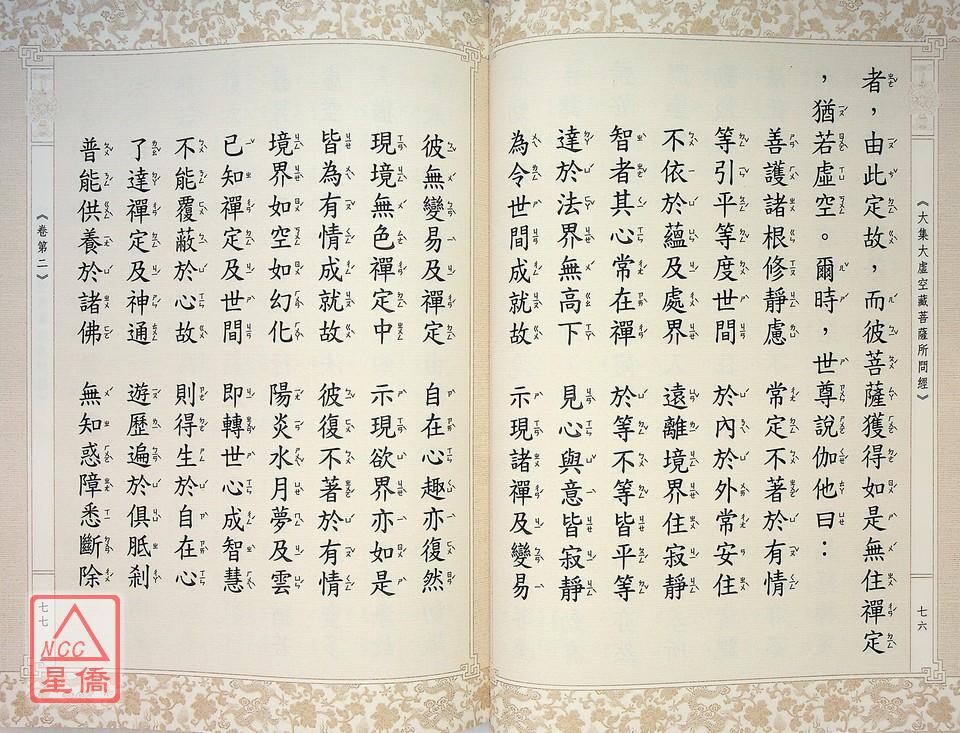 《大集大虛空藏菩薩所問經》
七六
者，由此定故，而彼菩薩獲得如是無住禪定
，猶若虛空。爾時，世尊說伽他曰：
善護諸根修靜慮　常定不著於有情
等引平等度世間　於內於外常安住
不依於蘊及處界　遠離境界住寂靜
智者其心常在禪　於等不等皆平等
達於法界無高下　見心與意皆寂靜
為令世間成就故　示現諸禪及變易
彼無變易及禪定　自在心趣亦復然
現境無色禪定中　示現欲界亦如是
皆為有情成就故　彼復不著於有情
境界如空如幻化　陽炎水月夢及雲
已知禪定及世間　即轉世心成智慧
不能覆蔽於心故　則得生於自在心
了達禪定及神通　遊歷遍於俱胝剎
普能供養於諸佛　無知惑障悉斷除
《卷第二》
七七
NCC
星僑